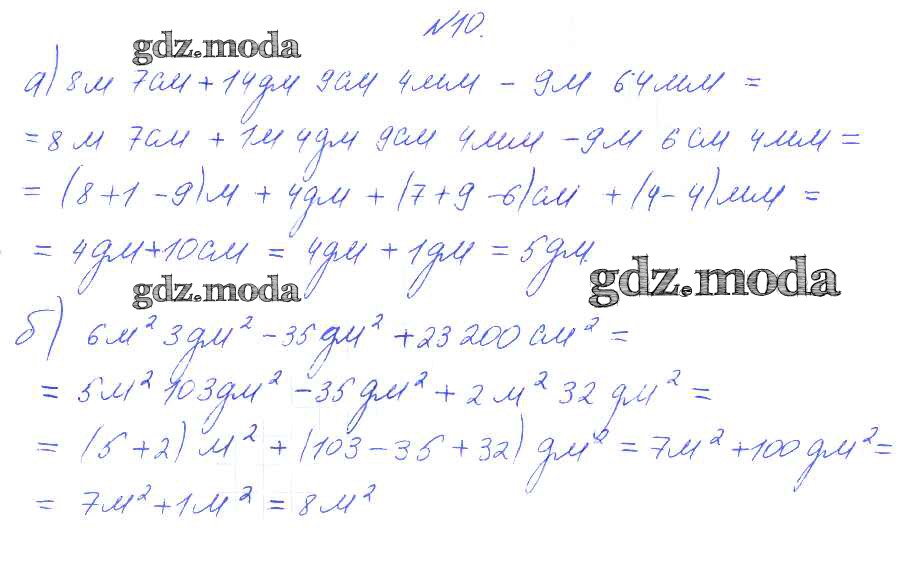 №10.
gdz.moda
а) 8м 7см + 14дм 9см 4мм - 9м 64мм =
= 8м 7см + 1м 4дм 9см 4мм - 9м 6см 4мм =
= (8+1-9)м + 4дм + (7+9-6)см + (4-4)мм =
= 4дм+10см = 4дм + 1дм = 5дм.
gdz.moda
gdz.moda
б) 6м² 3дм² - 35дм² + 23 200см² =
= 5м² 103дм² - 35дм² + 2м² 32дм² =
= (5+2)м² + (103-35+32)дм² = 7м² + 100дм² =
= 7м² + 1м² = 8м²